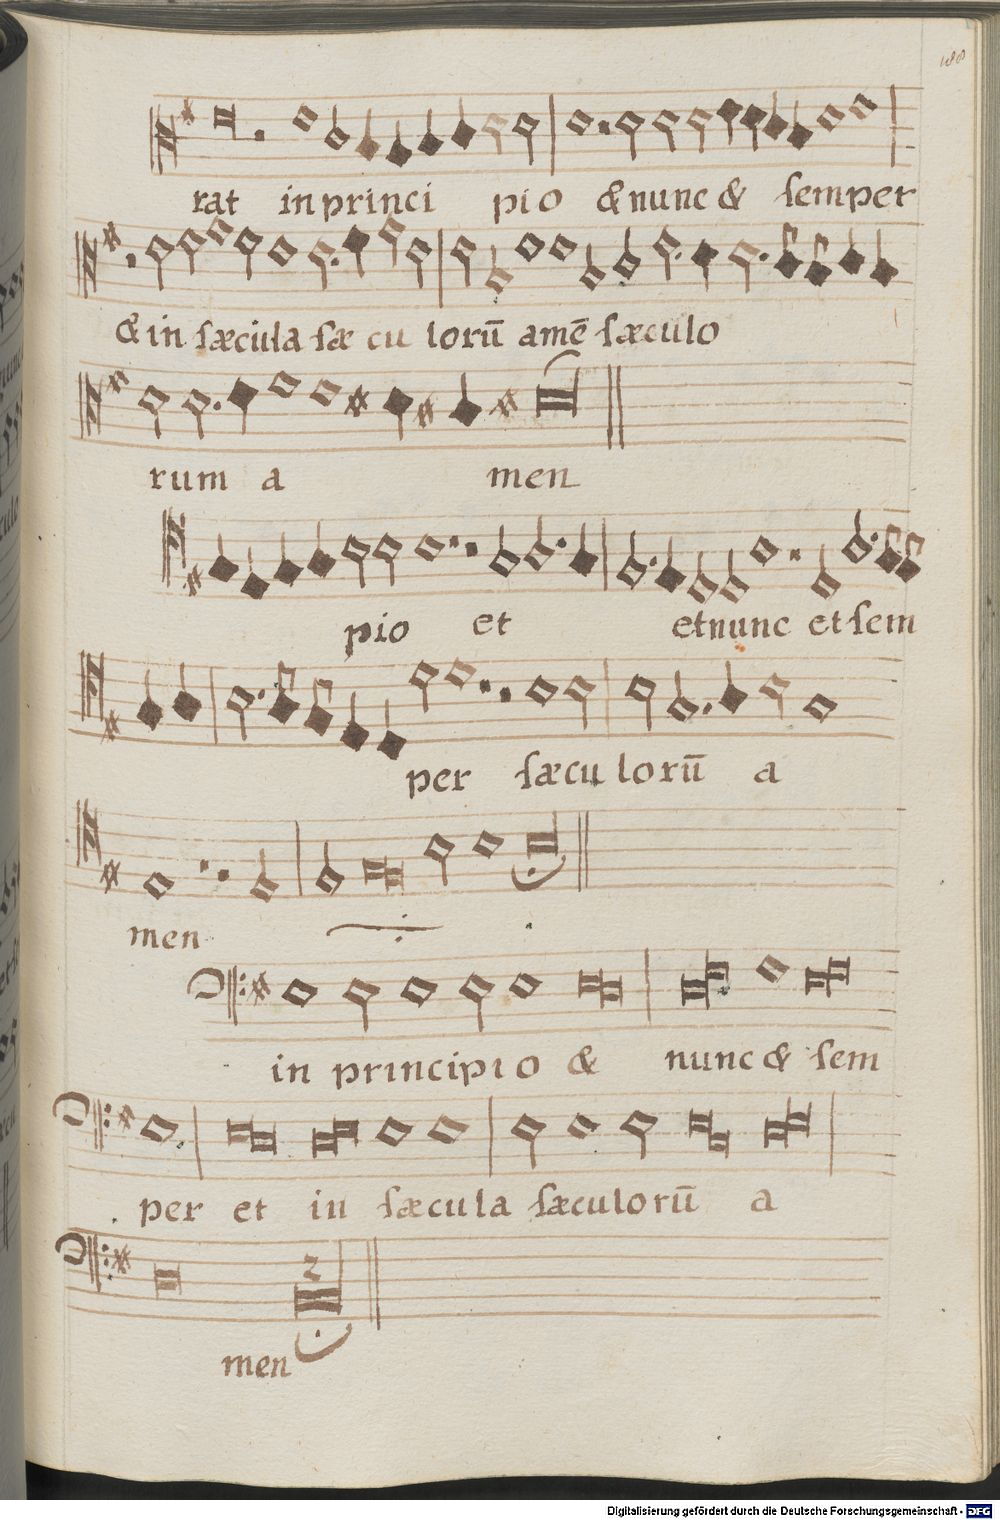 188
rat in princi pio & nunc & ſemper
& in ſæcula ſæ cu lorū amē ſæculo
rum a men
pio et et nunc et ſem
per ſæcu lorū a
men
in principio & nunc & ſem
per et in ſæcula ſæculorū a
men
Digitalisierung gefördert durch die Deutsche Forschungsgemeinschaft - DFG